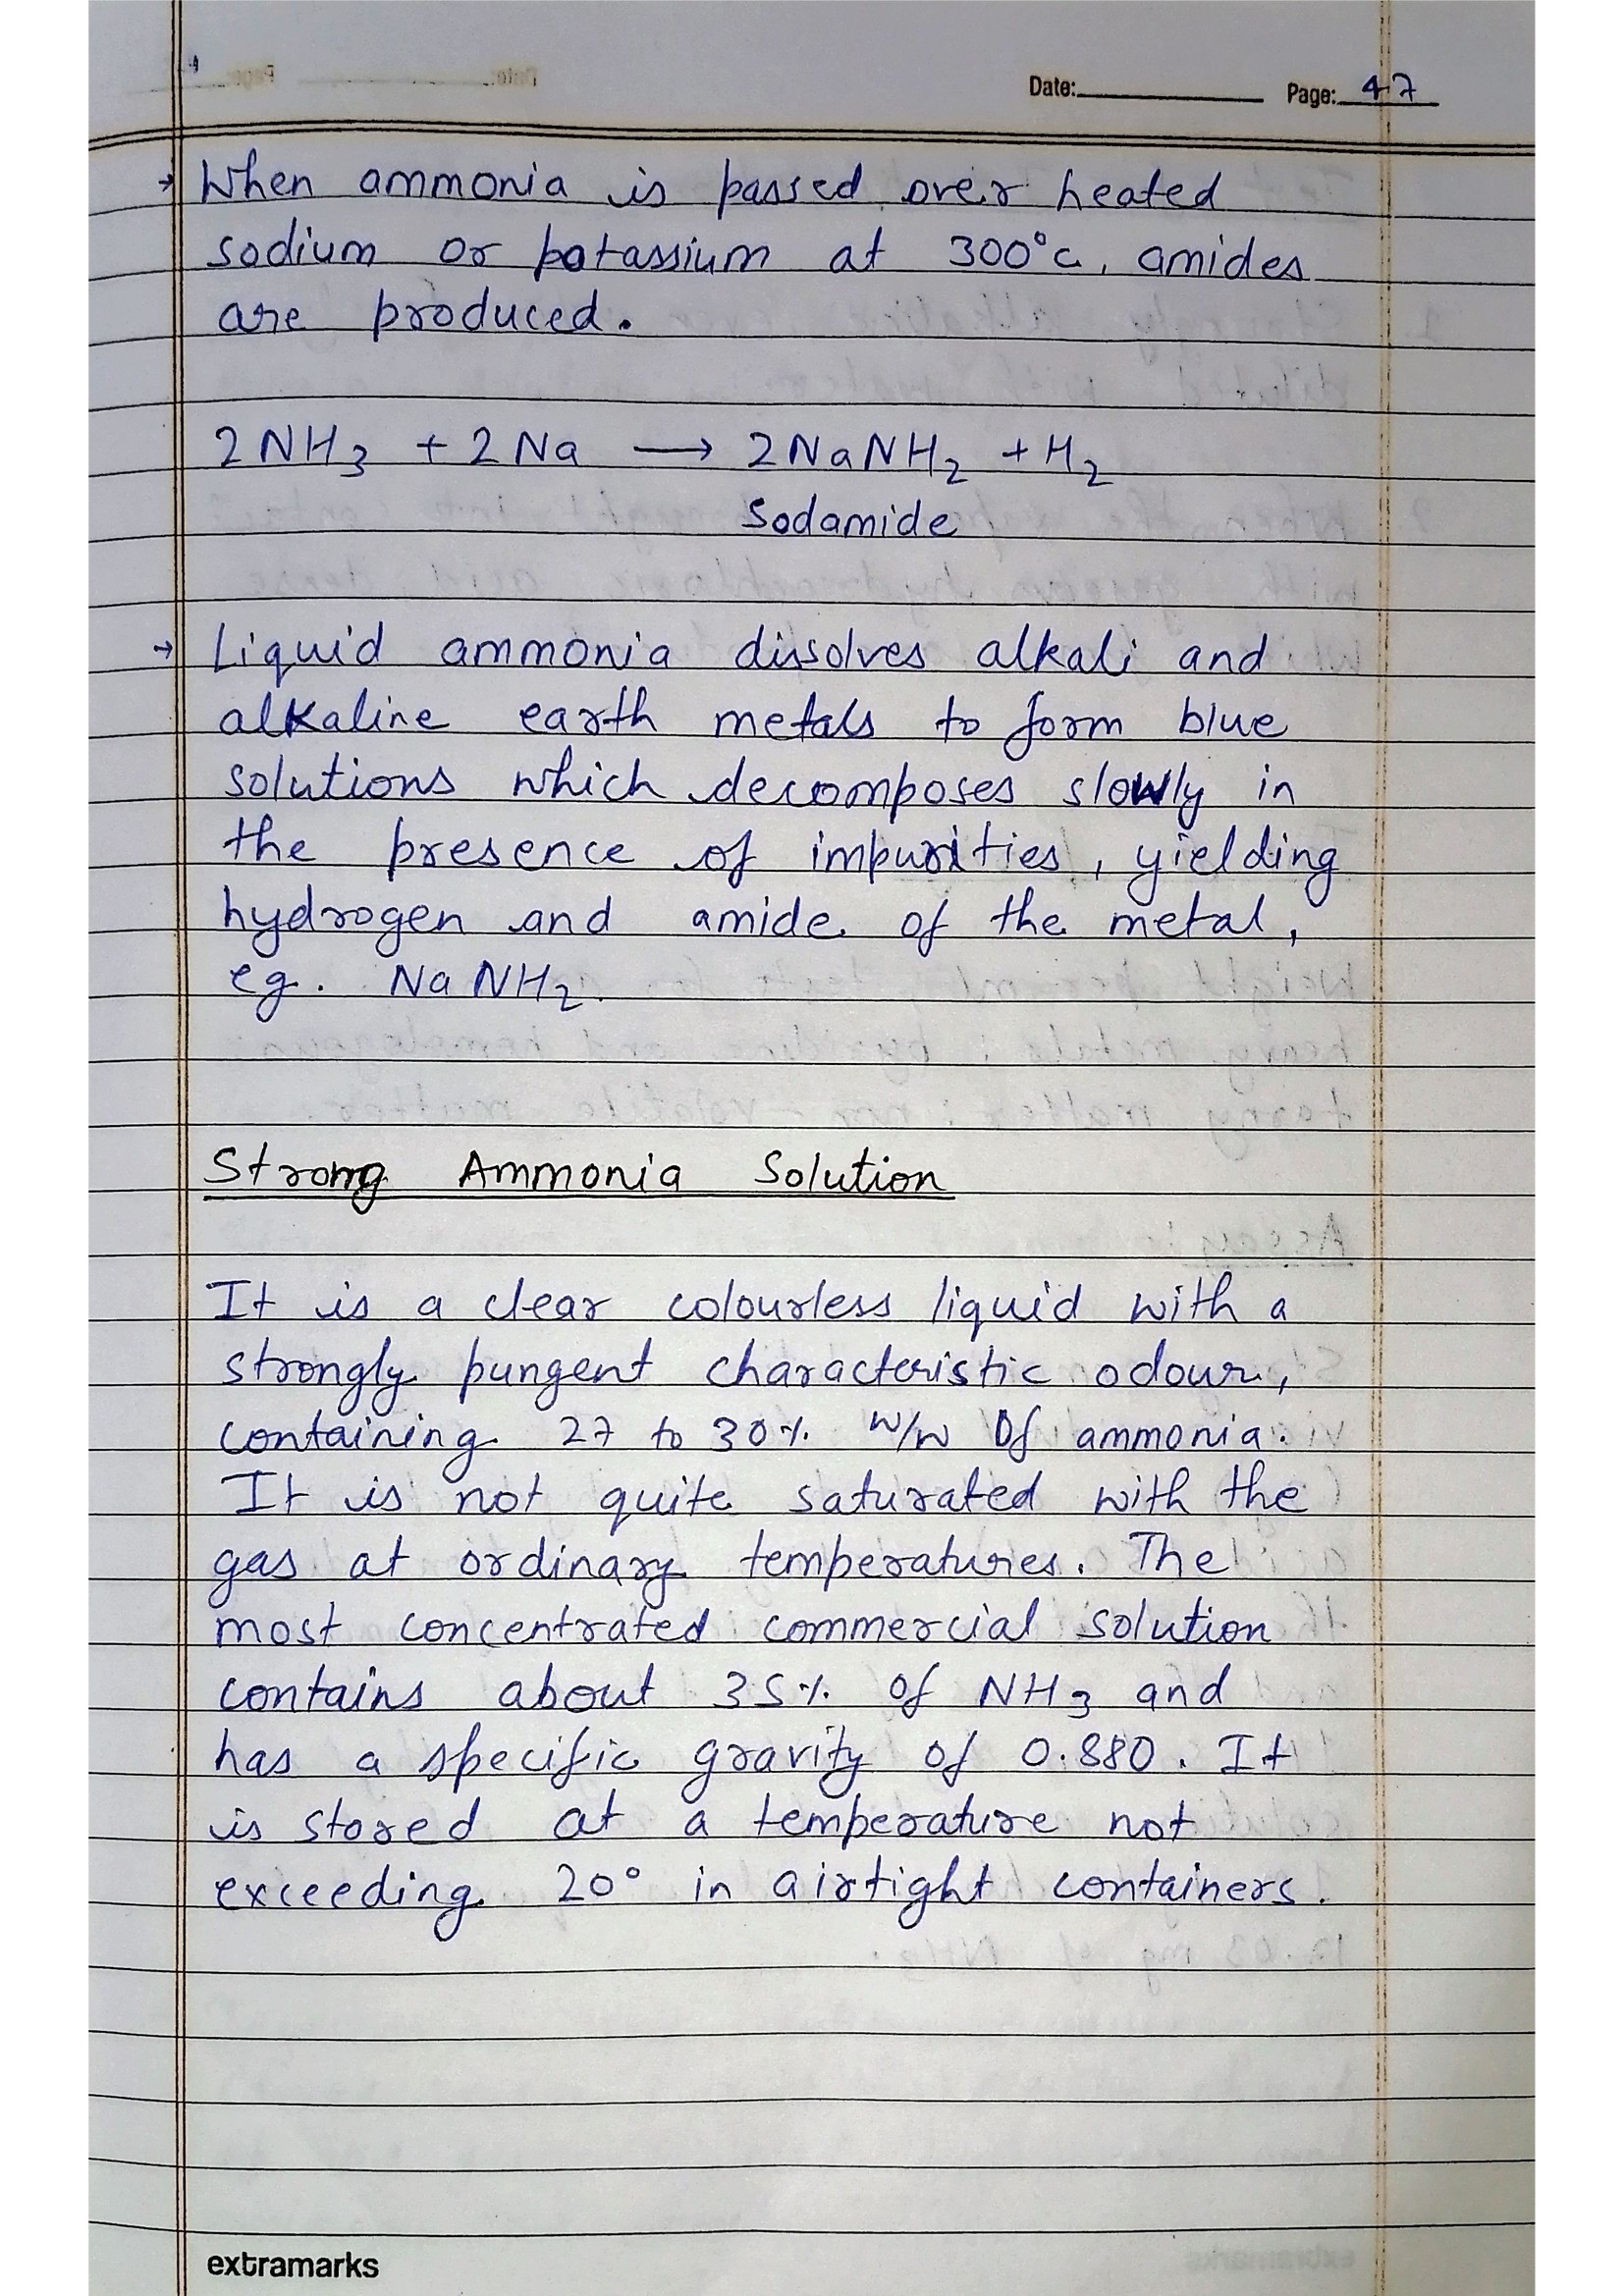 Date: Page: 47
→ When ammonia is passed over heated
sodium or potassium at 300°c, amides
are produced.
2NH₃ + 2Na ⟶ 2NaNH₂ + H₂
Sodamide
→ Liquid ammonia dissolves alkali and
alkaline earth metals to form blue
solutions which decomposes slowly in
the presence of impurities, yielding
hydrogen and amide of the metal,
eg. NaNH₂.
Strong Ammonia Solution
It is a clear colourless liquid with a
strongly pungent characteristic odour,
containing 27 to 30% w/w Of ammonia.
It is not quite saturated with the
gas at ordinary temperatures. The
most concentrated commercial solution
contains about 35% of NH₃ and
has a specific gravity of 0.880. It
is stored at a temperature not
exceeding 20° in airtight containers.
extramarks